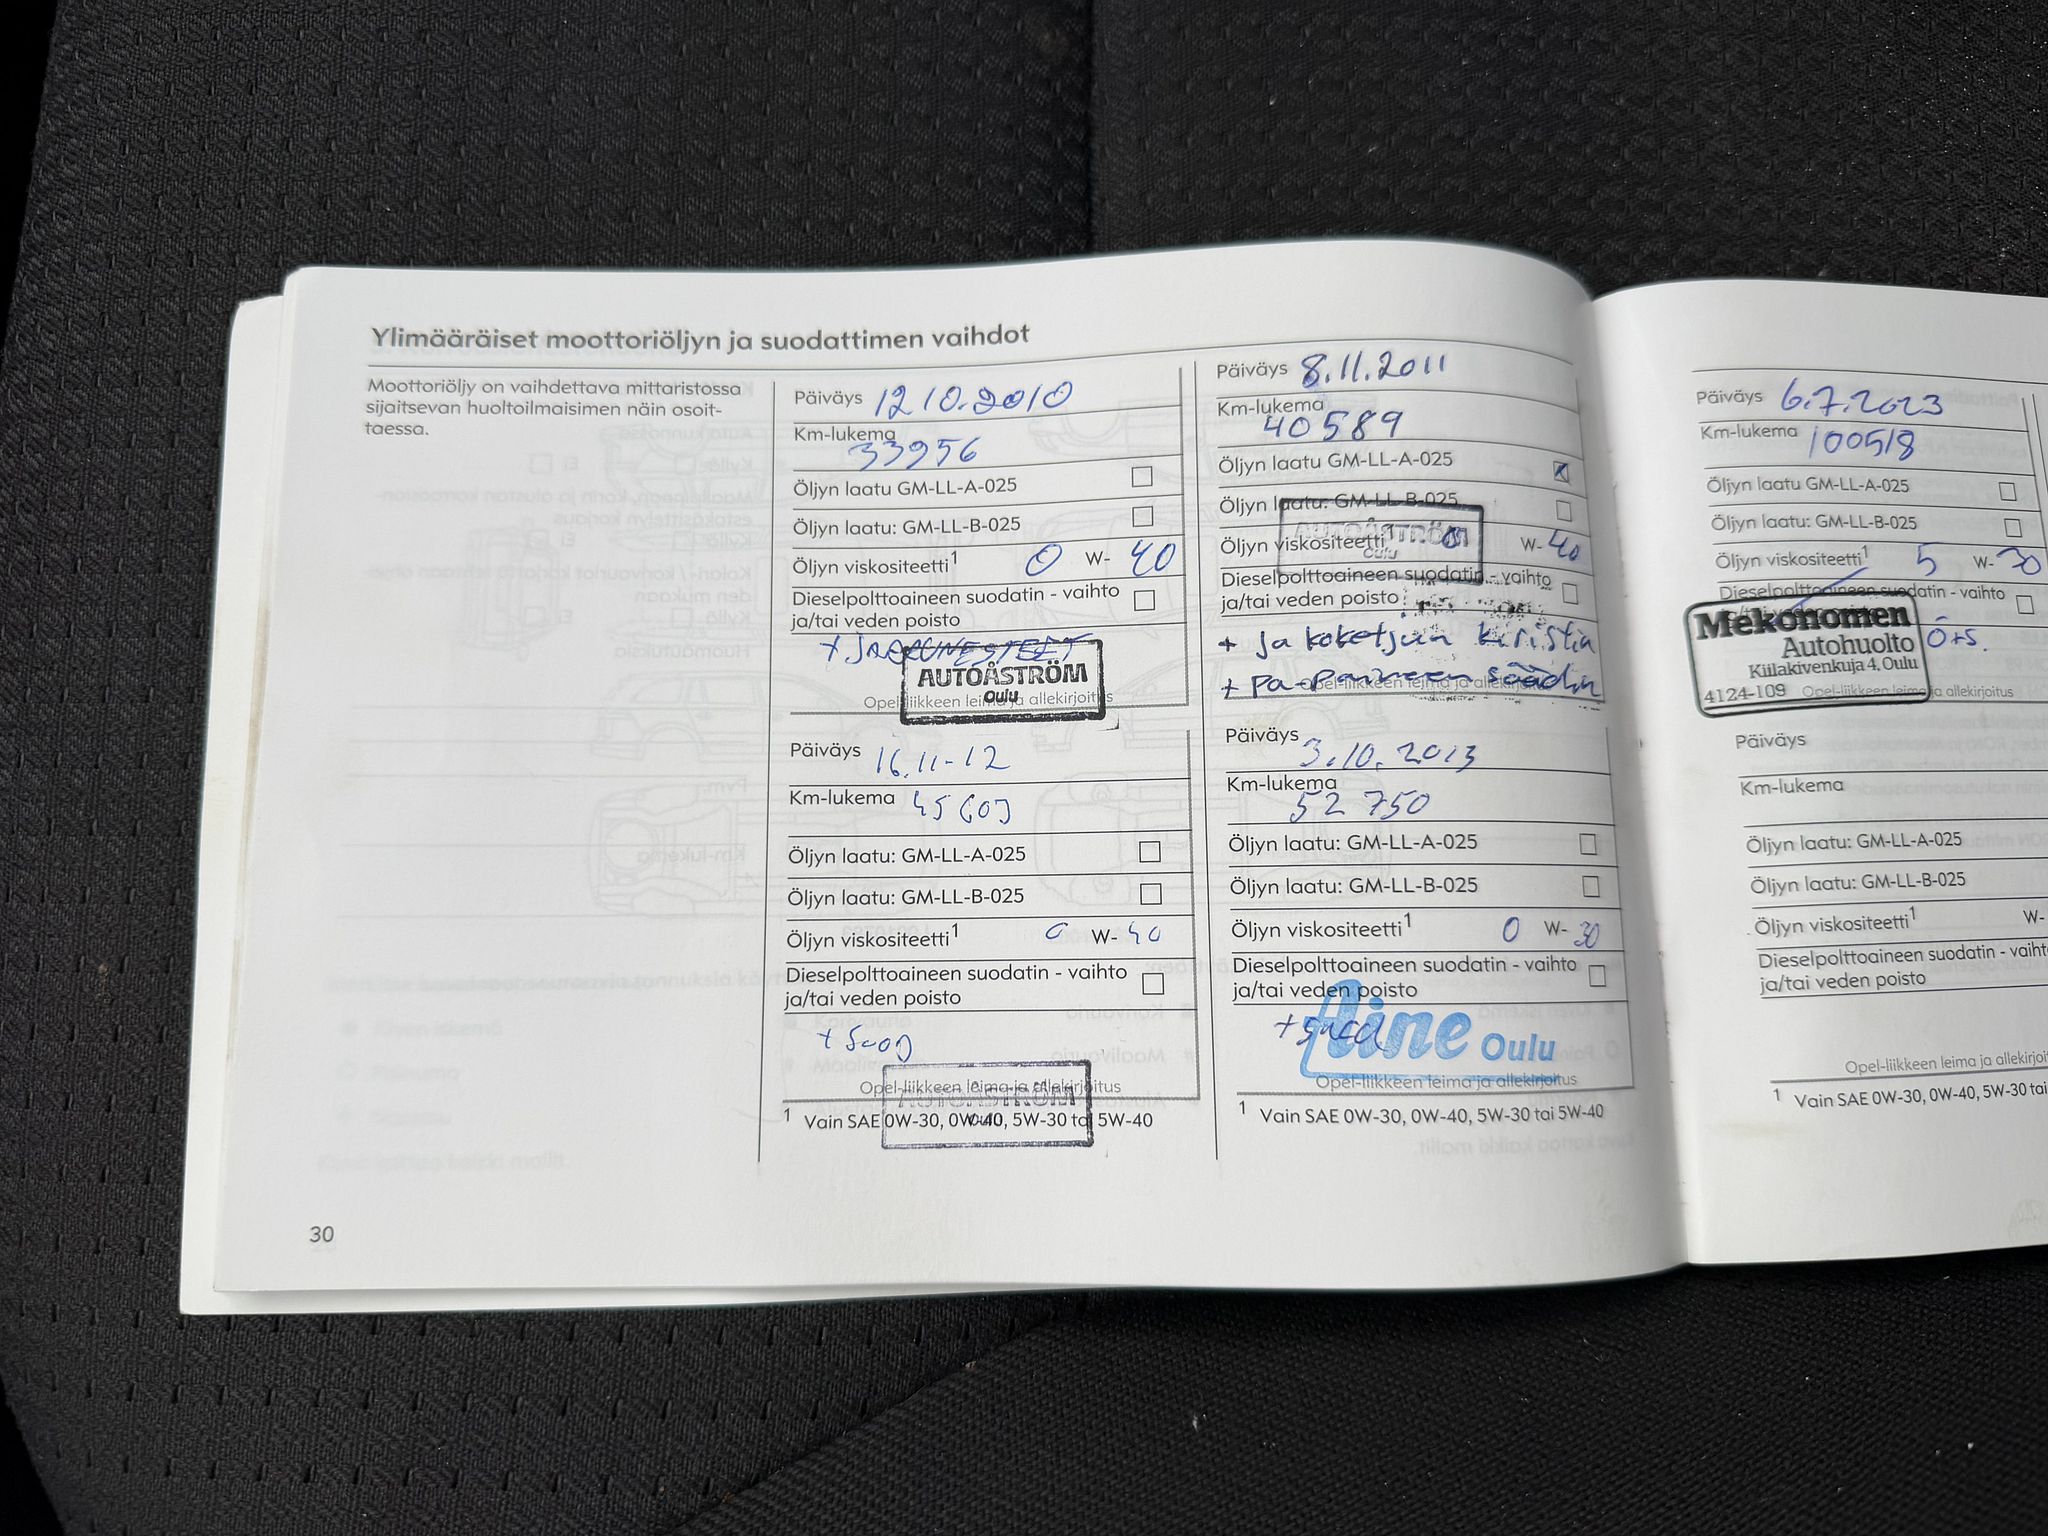 Ylimääräiset moottoriöljyn ja suodattimen vaihdot
Moottoriöljy on vaihdettava mittaristossa
sijaitsevan huoltoilmaisimen näin osoit-
taessa.
Päiväys 12.10.2010
Km-lukema
33956
Öljyn laatu GM-LL-A-025
Öljyn laatu: GM-LL-B-025
Öljyn viskositeetti¹ 0 W- 40
Dieselpolttoaineen suodatin - vaihto
ja/tai veden poisto
AUTOÅSTRÖM
Oulu
Opel-liikkeen leima ja allekirjoitus
Päiväys 16.11-12
Km-lukema
Öljyn laatu: GM-LL-A-025
Öljyn laatu: GM-LL-B-025
Öljyn viskositeetti¹ 0 W- 40
Dieselpolttoaineen suodatin - vaihto
ja/tai veden poisto
Opel-liikkeen leima ja allekirjoitus
AUTOÅSTRÖM
Oulu
¹ Vain SAE 0W-30, 0W-40, 5W-30 tai 5W-40
Päiväys 8.11.2011
Km-lukema
40589
Öljyn laatu GM-LL-A-025
Öljyn laatu: GM-LL-B-025
AUTOÅSTRÖM
Oulu
Öljyn viskositeetti 0 W- 40
Dieselpolttoaineen suodatin - vaihto
ja/tai veden poisto
+ jakoketjun kiristin
+ pa-paineen säädin
Opel-liikkeen leima ja allekirjoitus
Päiväys 3.10.2013
Km-lukema
52 750
Öljyn laatu: GM-LL-A-025
Öljyn laatu: GM-LL-B-025
Öljyn viskositeetti¹ 0 W- 30
Dieselpolttoaineen suodatin - vaihto
ja/tai veden poisto
Aine Oulu
Opel-liikkeen leima ja allekirjoitus
¹ Vain SAE 0W-30, 0W-40, 5W-30 tai 5W-40
30
Päiväys 6.7.2023
Km-lukema 100518
Öljyn laatu GM-LL-A-025
Öljyn laatu: GM-LL-B-025
Öljyn viskositeetti¹ 5 W- 30
Dieselpolttoaineen suodatin - vaihto
Mekonomen
Autohuolto
Kiilakivenkuja 4, Oulu
4124-109
Ö+S.
Opel-liikkeen leima ja allekirjoitus
Päiväys
Km-lukema
Öljyn laatu: GM-LL-A-025
Öljyn laatu: GM-LL-B-025
Öljyn viskositeetti¹ W-
Dieselpolttoaineen suodatin - vaiht
ja/tai veden poisto
Opel-liikkeen leima ja allekirjoi
¹ Vain SAE 0W-30, 0W-40, 5W-30 tai